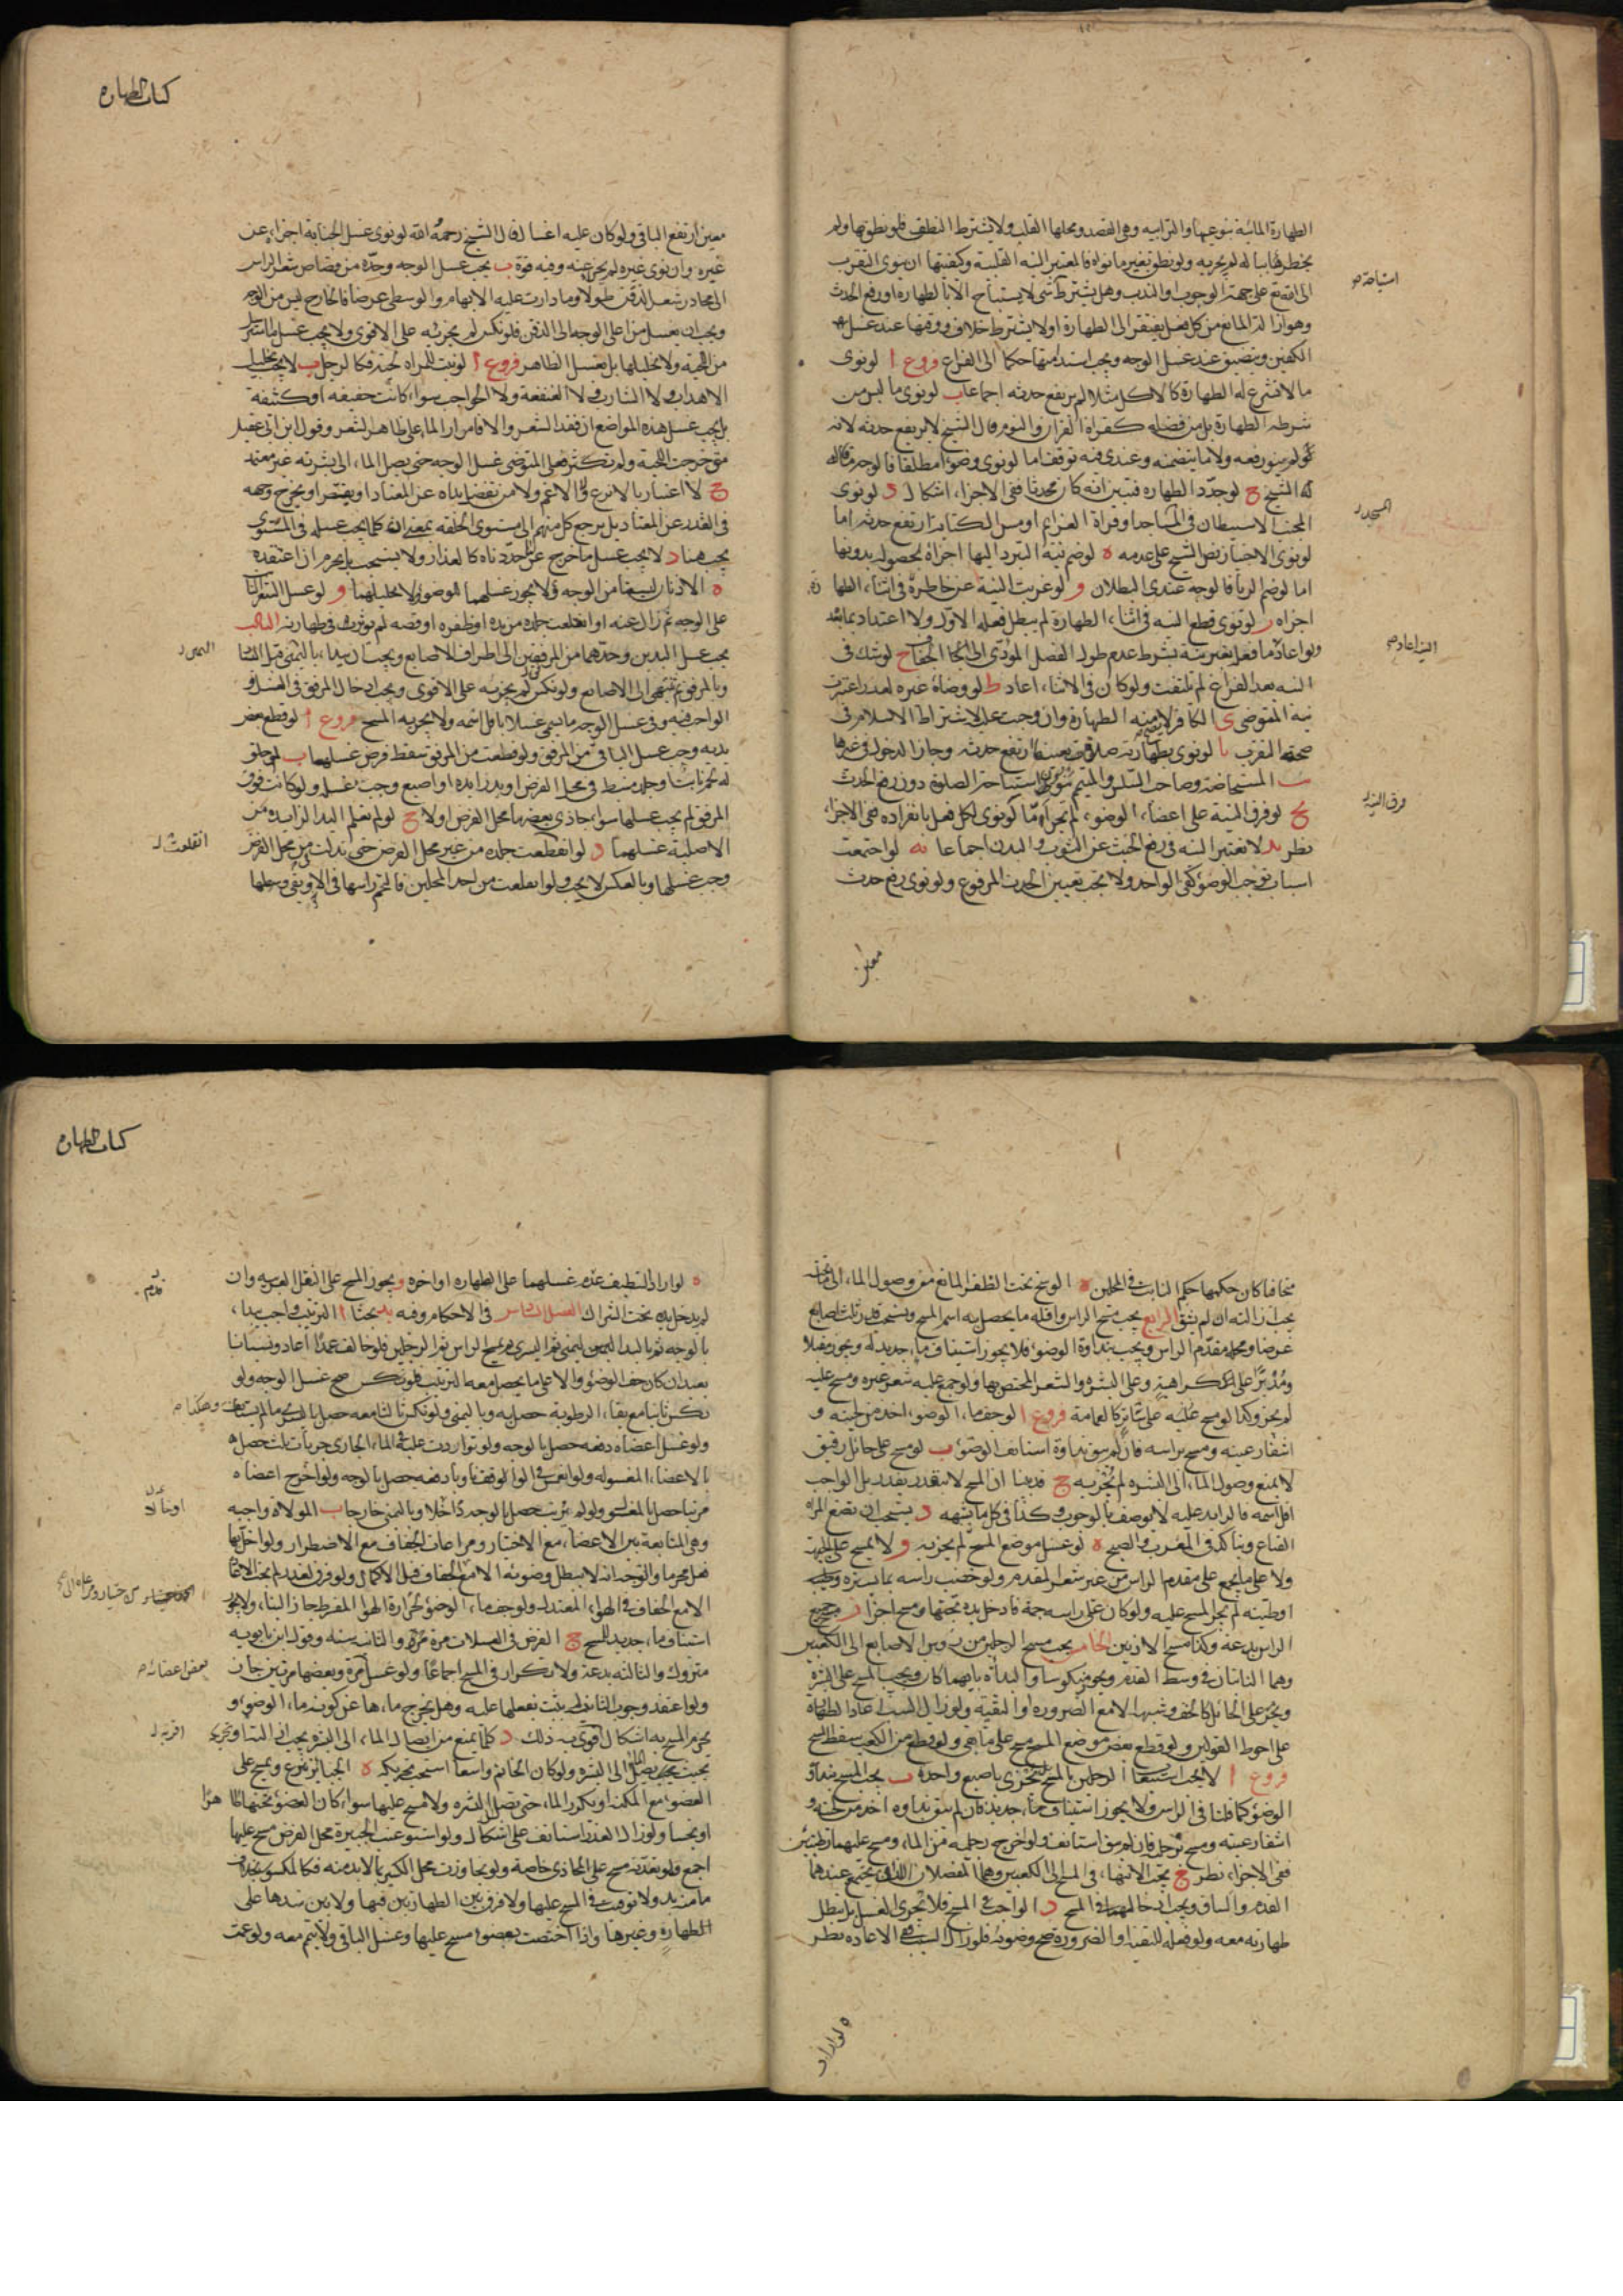 الطهارة المائية بنوعيها والترابيه وهى القصد ومحلها القلب ولا يشترط النطق فلو نطق بها ولم
يخطر بباله لم يجزيه ولو نطق بغير ما نواه فالمعتبر النيه القلبية وكيفيتها ان ينوى التقرب
الى الله تع على جهة الوجوب او الندب وهل يشترط شى لا يستباح الا بالطهارة او رفع الحدث
وهو ازالة المانع من كل فعل يفتقر الى الطهارة او لا يشترط خلاف ووقتها عند غسل
الكفين وتضيق عند غسل الوجه ويجب استدامتها حكما الى الفراغ فروع ا لو نوى
ما لا تشرع له الطهارة كالاكل مثلا لم يرتفع حدثه اجماعا ب لو نوى ما ليس من
شرطه الطهارة بل من فضله كقراءة القران والنوم قال الشيخ لا يرتفع حدثه لانه
لم ينو رفعه ولا ما يتضمنه وعندى فيه توقف اما لو نوى وضوءا مطلقا فالوجه ما قاله
الشيخ ج لو جدد الطهاره فتبين انه كان محدثا ففى الاجزاء اشكال د لو نوى
المجنب الاستيطان فى المساجد او قراة العزايم او مس الكتابة ارتفع حدثه اما
لو نوى الاجتياز نص الشيخ على عدمه ه لو ضم نية التبرد اليها اجزاه لحصوله بدونها
اما لو ضم الريا فالوجه عندى البطلان و لو عزبت النية عن خاطره فى اثناء الطهارة
اجزاه ز لو نوى قطع النيه فى اثناء الطهارة لم يبطل فعله الاول ولا اعتداد بما بعد
ولو اعاد ما فعل بغير نية بشرط عدم طول الفصل المؤدى الى الجفاف ح لو شك فى
النيه بعد الفراغ لم يلتفت ولو كان فى الاثناء اعاد ط لو وضاه غيره لعذر اعتبرت
نية المتوضى ى الكافر لا يصح منه الطهارة وان وجبت عليه لاشتراط الاسلام فى
صحة التقرب يا لو نوى بطهارته صلاة معينة ارتفع حدثه وجاز الدخول فى غيرها
يب المستحاضة وصاحب السلس والمتيمم ينوون استباحة الصلوة دون رفع الحدث
يج لو فرق النية على اعضاء الوضوء لم يجز اما لو نوى لكل فعل بانفراده ففى الاجزاء
نظر يد لا تعتبر النيه فى رفع الخبث عن الثوب والبدن اجماعا يه لو اجتمعت
اسباب توجب الوضوء كفى الواحد ولا يجب تعيين الحدث المرفوع ولو نوى رفع حدث
استباحة
المسجد
النية اعاد
فرق النية
معين
كتاب الطهاره
معين ارتفع الباقى ولو كان عليه اغسال قال الشيخ رحمه الله لو نوى غسل الجنابة اجزاه عن
غيره وان نوى غيره لم يجز عنه وفيه قوة ب يجب غسل الوجه وحده من قصاص شعر الراس
الى محادر شعر الذقن طولا وما دارت عليه الابهام والوسطى عرضا فالخارج ليس من الوجه
ويجب ان يغسل من اعلى الوجه الى الذقن فلو نكس لم يجزئه على الاقوى ولا يجب غسل ما استرسل
من اللحية ولا تخليلها بل يغسل الظاهر فروع ا لو نبت للمراة لحية فكالرجل ب لا يجب تخليل
الاهداب ولا الشارب ولا العنفقة ولا الحواجب سواء كانت خفيفه او كثيفة
بل يجب غسل هذه المواضع ان فقد الشعر والا فامرار الماء على ظاهر الشعر وقول ابن ابى عقيل
متى خرجت اللحية ولم تكثر فعلى المتوضى غسل الوجه حتى يصل الماء الى بشرته غير معتمد
ج لا اعتبار بالانزع ولا الاغم ولا من تفضل يداه عن المعتاد او يقصر او يخرج وجهه
فى القدر عن المعتاد بل يرجع كل منهم الى مستوى الخلقه بمعنى انه كلما يجب غسله فى المستوى
يجب هنا د لا يجب غسل ما خرج عن ما حددناه كالعذار ولا يستحب بل يحرم ان اعتقده
ه الاذنان ليستا من الوجه ولا يجوز غسلهما للوضوء ولا تخليلهما و لو غسل الشعر النابت
على الوجه ثم زال عنه او انقلعت جلده من يده او ظفره او قصه لم يوثر فى طهارته الثالث
يجب غسل اليدين وحدهما من المرفقين الى اطراف الاصابع ويجب ان يبدا باليمنى قبل الشمال
وبالمرفق ثم ينتهى الى الاصابع ولو نكس لم يجزيه على الاقوى ويجب ادخال المرفق فى الغسل و
الواجب فيه وفى غسل الوجه ما يسمى غسلا باقل اسمه ولا يجزيه المسح فروع ا لو قطع بعض
يديه وجب غسل الباقى من المرفق ولو قطعت من المرفق سقط فرض غسلها ب لو خلق
له لحم نابت او جلد منبسط فى محل الفرض او يد زايده او اصبع وجب غسله ولو كانت فوق
المرفق لم يجب غسلها سواء حاذى بعضها محل الفرض او لا ج لو لم تعلم اليد الزايدة من
الاصلية غسلهما د لو انقطعت جلده من غير محل الفرض حتى تدلت من محل الفرض
وجب غسلها وبالعكس لا يجب ولو انقلعت من احد المحلين فالتحم راسها فى الاخر وبقى وسطها
انقلعت
متجافيا كان حكمها حكم النابت فى المحلين ه الوسخ تحت الظفر المانع من وصول الماء الى ما تحته
يجب ازالته ان لم يشق الرابع يجب مسح الراس واقله ما يحصل به اسم المسح ويستحب قدر ثلث اصابع
عرضا ومحله مقدم الراس ويجب بنداوة الوضوء فلا يجوز استيناف ماء جديد له ويجوز مقبلا
ومدبرا على كراهية وعلى البشره والشعر المختص بها ولو جمع عليه شعر غيره ومسح عليه
لم يجز وكذا لو مسح على ساتر كالعمامة فروع ا لو جف ماء الوضوء اخذ من لحيته و
اشفار عينيه ومسح براسه فان لم يبق نداوة استانف الوضوء ب لو مسح على حائل رقيق
لا يمنع وصول الماء الى البشره لم يجزيه ج قد بينا ان المسح لا يتقدر بقدر بل الواجب
اقل اسمه فالزايد عليه لا يوصف بالوجوب وكذا فى كل ما يشبهه د يستحب ان تضع المراة
القناع ويتاكد فى المغرب والصبح ه لو غسل موضع المسح لم يجزيه و لا يمسح على الجبهة
ولا على ما يجمع على مقدم الراس من غير شعر المقدم ولو خضب راسه بما يستره
او طينه لم يجز المسح عليه ولو كان على راسه جمة فادخل يده تحتها ومسح اجزا ز مسح جميع
الراس بدعة وكذا مسح الاذنين الخامس يجب مسح الرجلين من روس الاصابع الى الكعبين
وهما الناتيان فى وسط القدم ويجوز منكوسا والبداة بايهما كان ويجب المسح على البشرة
ويحرم على الحائل كالخف وشبهه الا مع الضرورة او التقية ولو زال السبب اعاد الطهارة
على احوط القولين ولو قطع بعض موضع المسح مسح على ما بقى ولو قطع من الكعب سقط المسح
فروع ا لا يجب استيعاب الرجلين بالمسح بل يجزى باصبع واحدة ب يجب المسح بنداوة
الوضوء كما قلنا فى الراس ولا يجوز استيناف ماء جديد فان لم يبق نداوه اخذ من لحيته و
اشفار عينيه ومسح برجليه فان لم يبق استانف ولو اخرج رجليه من الماء ومسح عليهما رطبتين
ففى الاجزاء نظر ج يجب الانتهاء فى المسح الى الكعبين وهما المفصلان اللذان يجتمع عندهما
القدم والساق ويجب ادخالهما فى المسح د الواجب المسح فلا يجزى الغسل بل يبطل
طهارته معه ولو فعله للتقية او الضرورة صح وضوئه فلو زال السبب ففى الاعاده نظر
ه لو اراد
كتاب الطهاره
ه لو اراد التنظيف قدم غسلهما على الطهاره او اخره و يجوز المسح على النعل العربيه وان
لم يدخل يده تحت الشراك الفصل السادس فى الاحكام وفيه يد بحثا ا الترتيب واجب يبدا
بالوجه ثم باليد اليمنى ثم اليسرى ثم يمسح الراس ثم الرجلين فلو خالف عمدا اعاد ونسيانا
يعيد ان كان جف الوضوء والا على ما يحصل معه الترتيب فلو نكس صح غسل الوجه ولو
نكس ثانيا مع بقاء الرطوبة حصل به وباليمنى ولو نكس ثالثا معه حصل باليسرى
ولو غسل اعضاه دفعه حصل بالوجه ولو تواردت عليه فى الماء الجارى جريات ثلث حصل
بالاعضاء المغسوله ولو انغمس فى الواقف ناويا دفعه حصل بالوجه ولو اخرج اعضاه
مرتبا حصل بالمغسول ولو لم يرتب حصل بالوجه داخلا وباليمنى خارجا ب الموالاة واجبه
وهى المتابعة بين الاعضاء مع الاختيار ومراعات الجفاف مع الاضطرار ولو اخل بها
فعل محرما والوجه انه لا يبطل وضوئه الا مع الجفاف قبل الاكمال ولو فرق لعذر لم يجب الاعاده
الا مع الجفاف فى الهواء المعتدل ولو جف ماء الوضوء لحرارة الهوا المفرط جاز البناء ولا يجوز
استيناف ماء جديد للمسح ج الفرض فى الغسلات مرة مرة والثانيه سنه وقول ابن بابويه
متروك والثالثه بدعة ولا تكرار فى المسح اجماعا ولو غسل مرة وبعضها مرتين جاز
ولو اعتقد وجوب الثانيه لم يثب بفعلها عليه وهل يخرج ماءها عن كونه ماء الوضوء و
يحرم المسح به اشكال اقربه ذلك د كلما يمنع من ايصال الماء الى البشره يجب ازالته او تحريكه
بحيث يصل الماء الى البشره ولو كان الخاتم واسعا استحب تحريكه ه الجباير تنزع ويمسح على
العضو مع المكنه او يكرر الماء حتى يصل البشره والا مسح عليها سواء كان العضو تحتها طاهرا
او نجسا ولو زال العذر استانف على اشكال ولو استوعبت الجبيرة محل الفرض مسح عليها
اجمع ولو تعدته مسح على المحاذى خاصة ولو تجاوزت محل الكسر بما لا بد منه فكالمكسور
ما من بد ولا توقيت فى المسح عليها ولا فرق بين الطهارتين فيها ولا بين شدها على
الطهارة وغيرها واذا اختصت بعضو مسح عليها وغسل الباقى ولا يتيمم معه ولو عمت
قدم
وهكذا
بعض اعضائه
اقربه